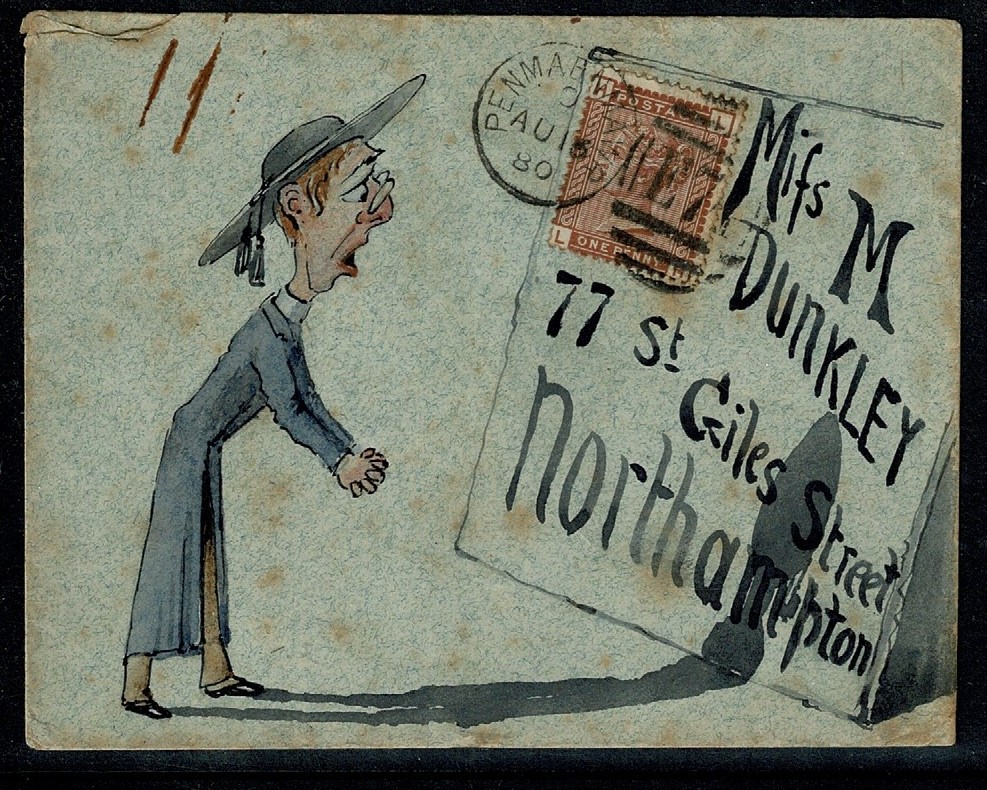 PENMAE
AU 18
80
POSTAGE
ONE PENNY
L
Mifs M
DUNKLEY
77 St Giles Street
Northampton